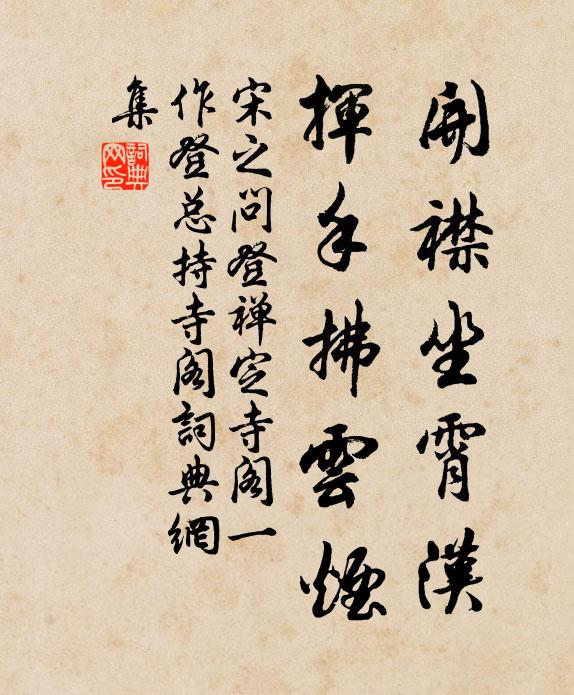 開襟坐霄漢
揮手拂雲煙
宋之问登禅定寺阁一
作登总持寺阁詞典網
集
詞典
网印